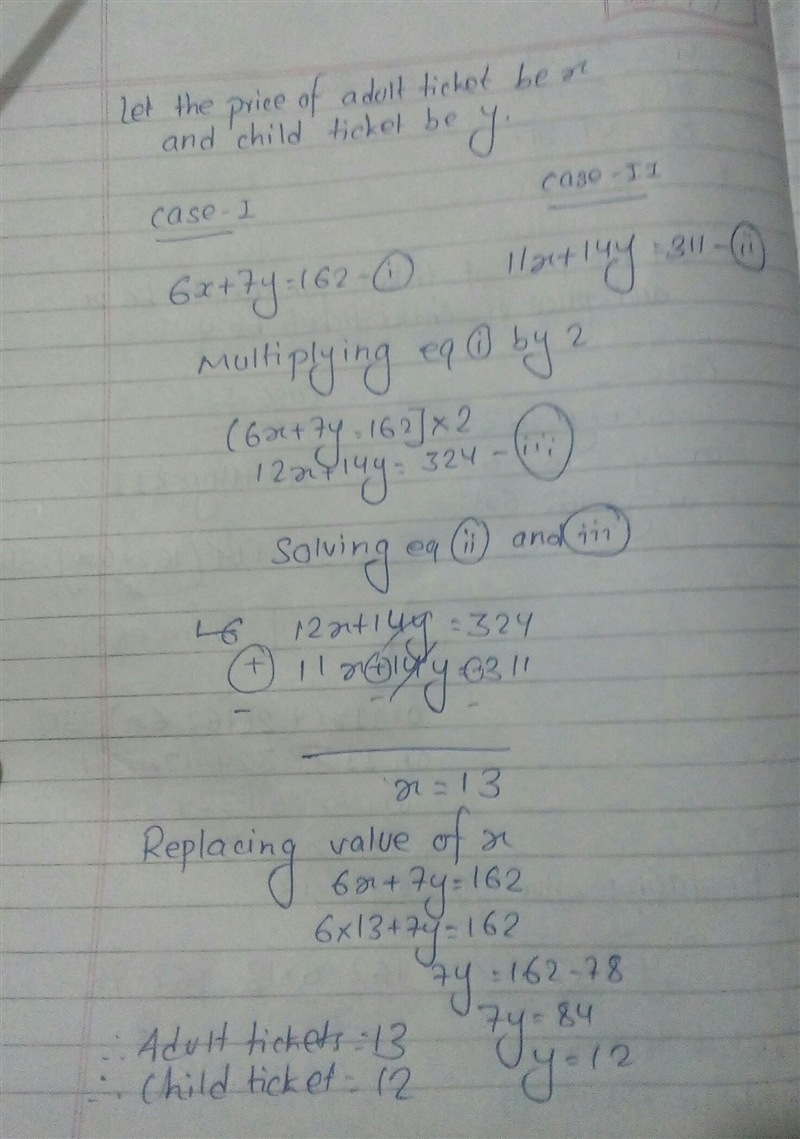 Let the price of adult ticket be x
and child ticket be y.
Case-I
Case-II
6x+7y=162 - (i)
11x+14y=311 - (ii)
Multiplying eq (i) by 2
(6x+7y=162]×2
12x+14y=324 - (iii)
Solving eq (ii) and (iii)
12x+14y=324
+ 11x+14y=311
- - -
x=13
Replacing value of x
6x+7y=162
6×13+7y=162
7y=162-78
7y=84
y=12
∴ Adult tickets=13
∴ Child ticket=12